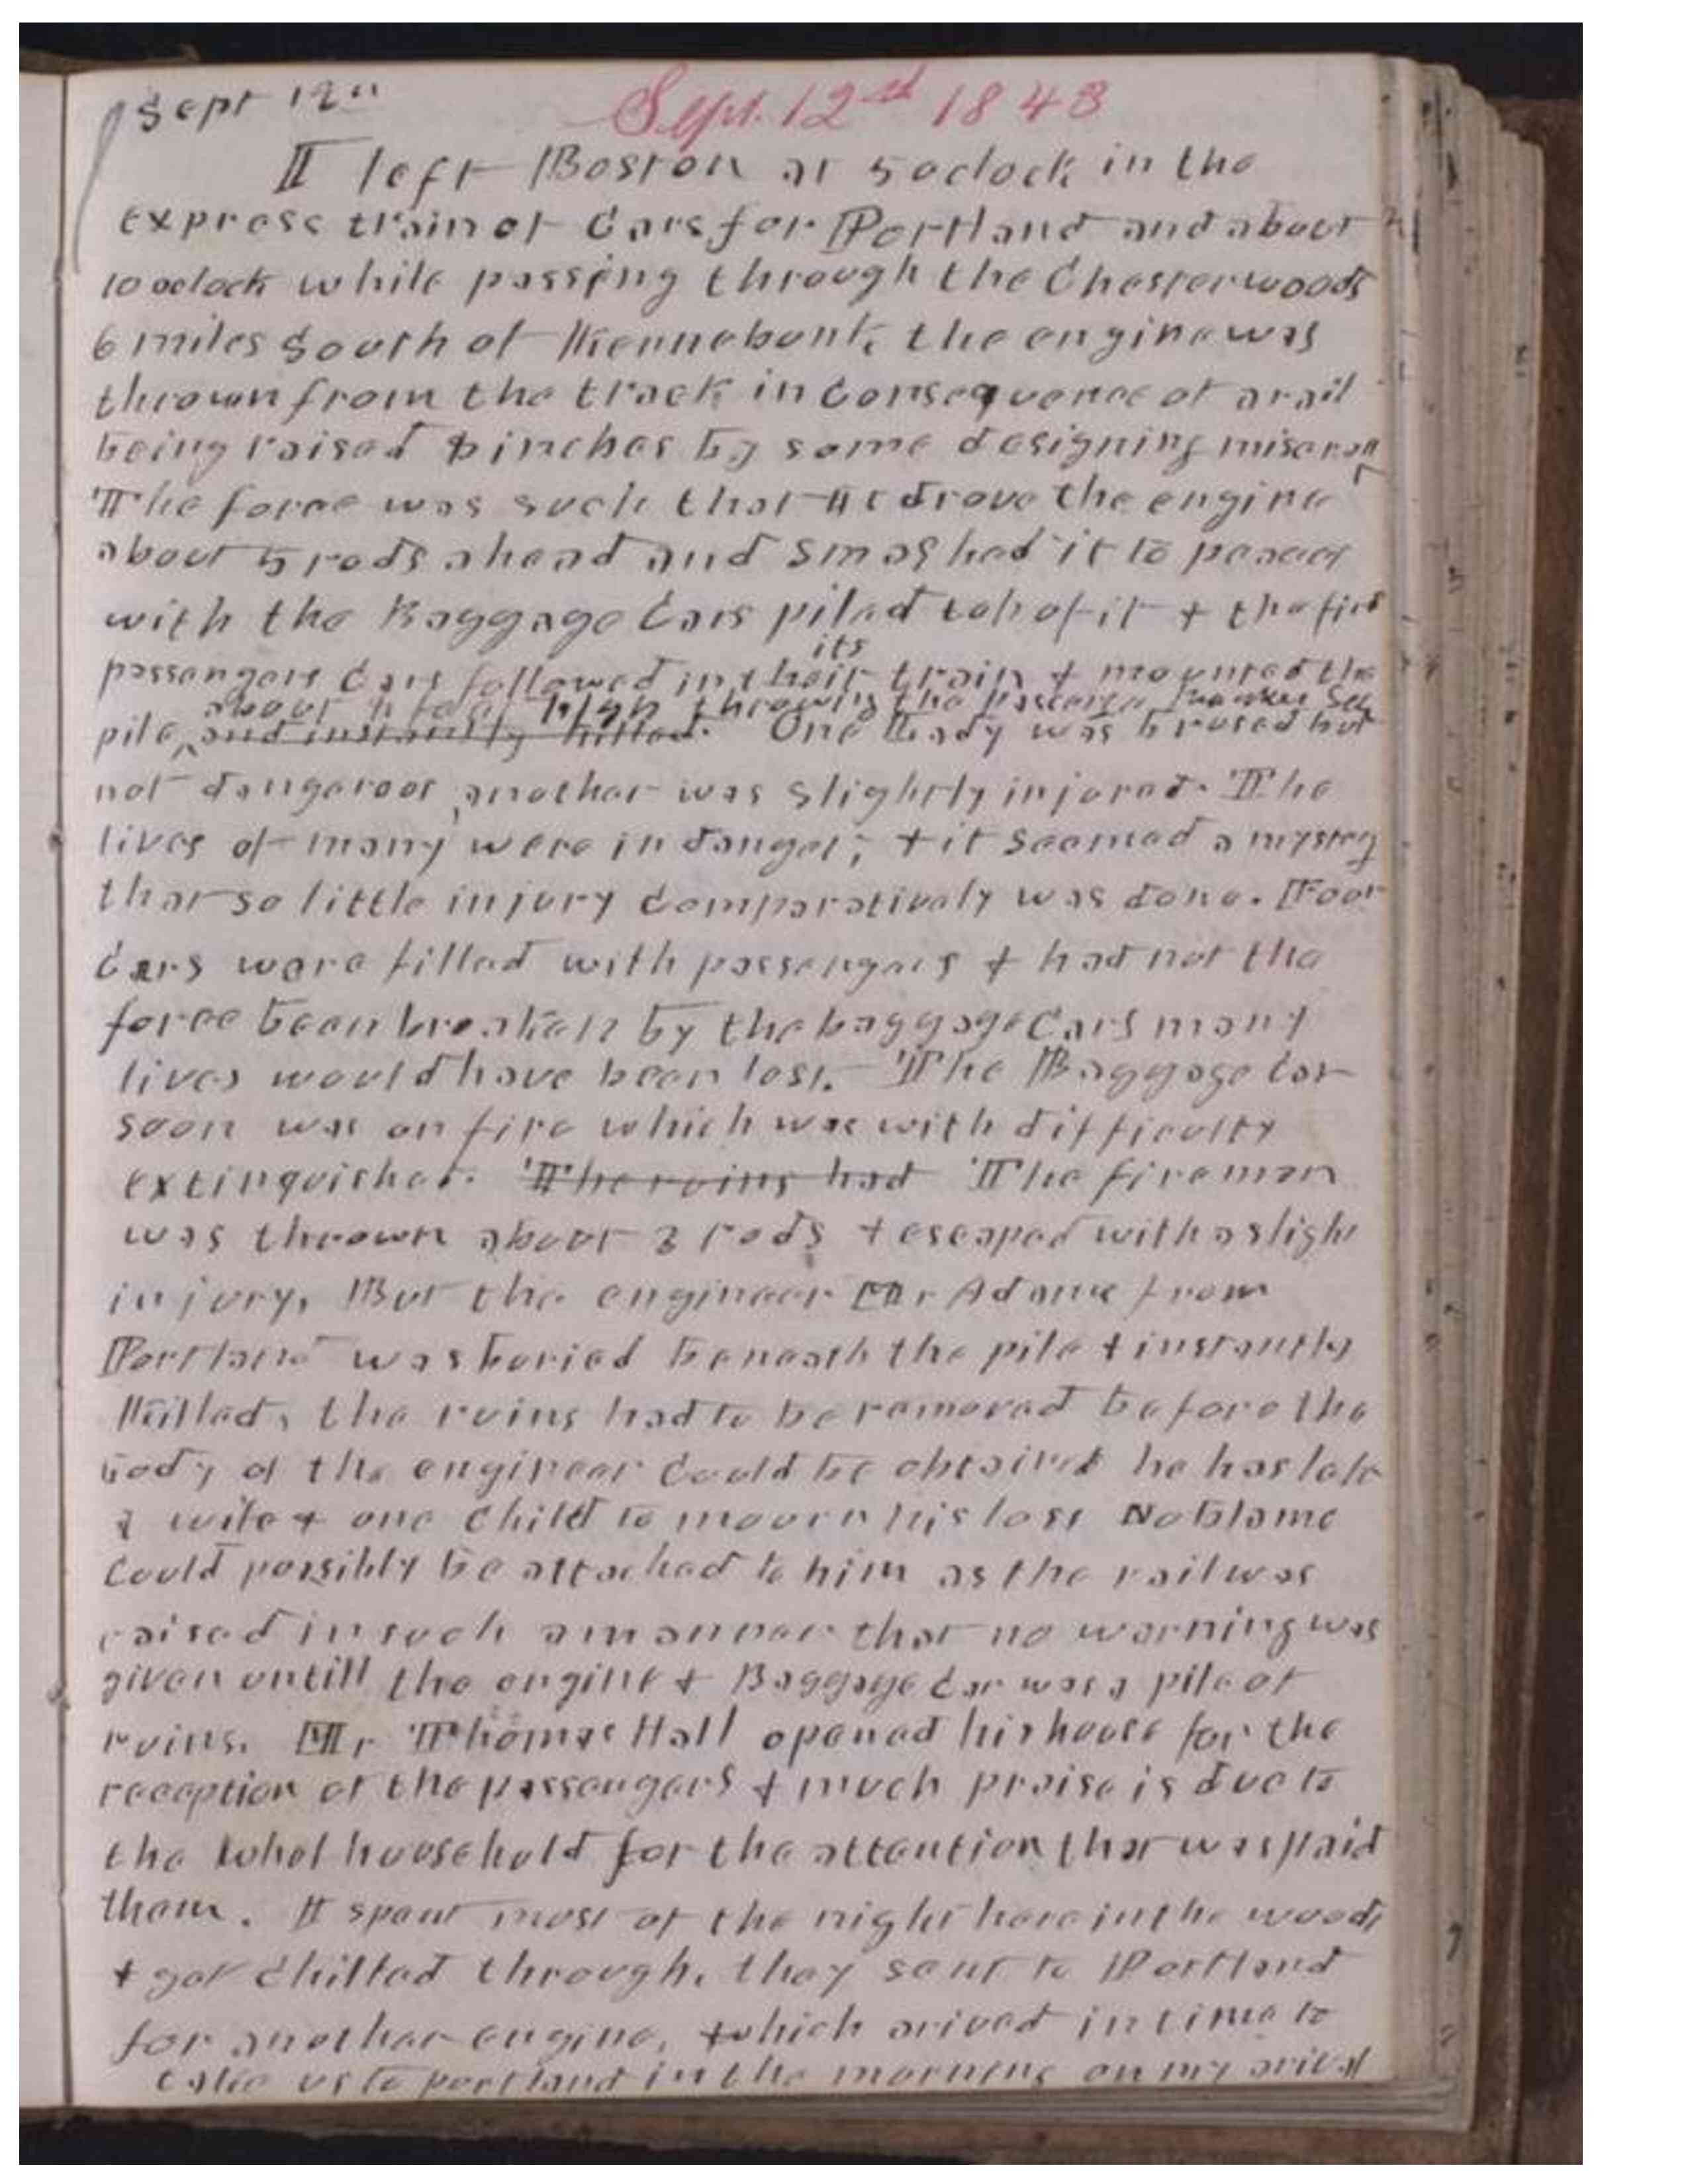 Sept 12"
Sept. 12th 1848
I left Boston at 5 oclock in the
express train of Cars for Portland and about
10 oclock while passing through the Chester woods
6 miles South of Kennebunk, the engine was
thrown from the track in Consequence of a rail
being raised inches by some designing
The force was such that it drove the engine
about 5 rods ahead and Smashed it to peaces
with the Baggage Cars piled top of it + the first
its
passengers Cars followed in their train + mounted the
about feet high throwing the
pile and instantly killed. One Lady was brused but
not dangerous, another was slightly injured. The
lives of many were in danger, + it Seemed a mystery
that so little injury Comparatively was done. Four
Cars were filled with passengers + had not the
force been broaken by the baggage Cars many
lives would have been lost. The Baggage Car
soon was on fire which was with difficulty
extinguished. The ruins had The fireman
was thrown about 3 rods + escaped with a slight
injury, But the engineer Mr Adams from
Portland was buried beneath the pile + instantly
Killed, the ruins had to be removed before the
body of the engineer Could be obtained he has left
a wife + one Child to mourn his loss No blame
Could possibly be attached to him as the rail was
raised in such a manner that no warning was
given untill the engine + Baggage Car was a pile of
ruins. Mr Thomas Hall opened his house for the
reception of the passengers + much praise is due to
the whol household for the attention that was paid
them. I spent most of the night here in the woods
+ got Chilled through. they sent to Portland
for another engine, which arived in time to
take us to portland in the morning on my arival